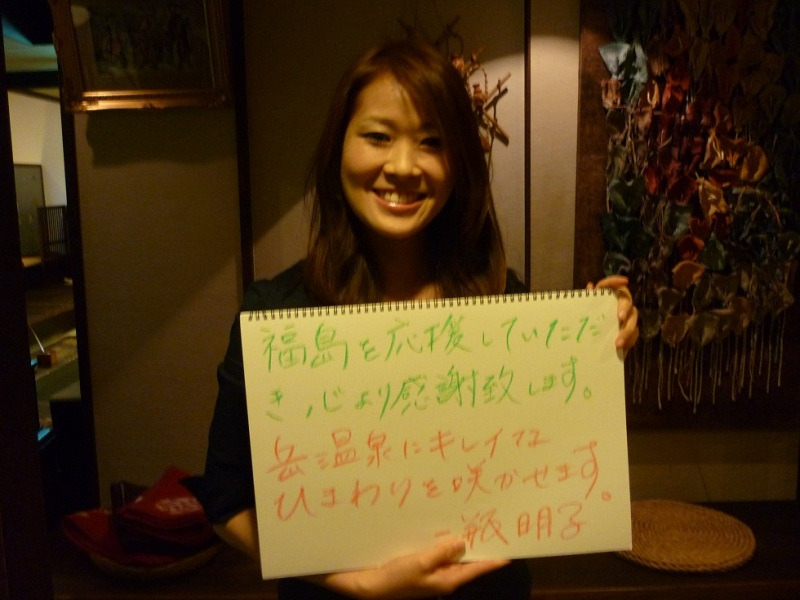 福島を応援していただ
き、心より感謝致します。
岳温泉にキレイな
ひまわりを咲かせます。
二瓶明子